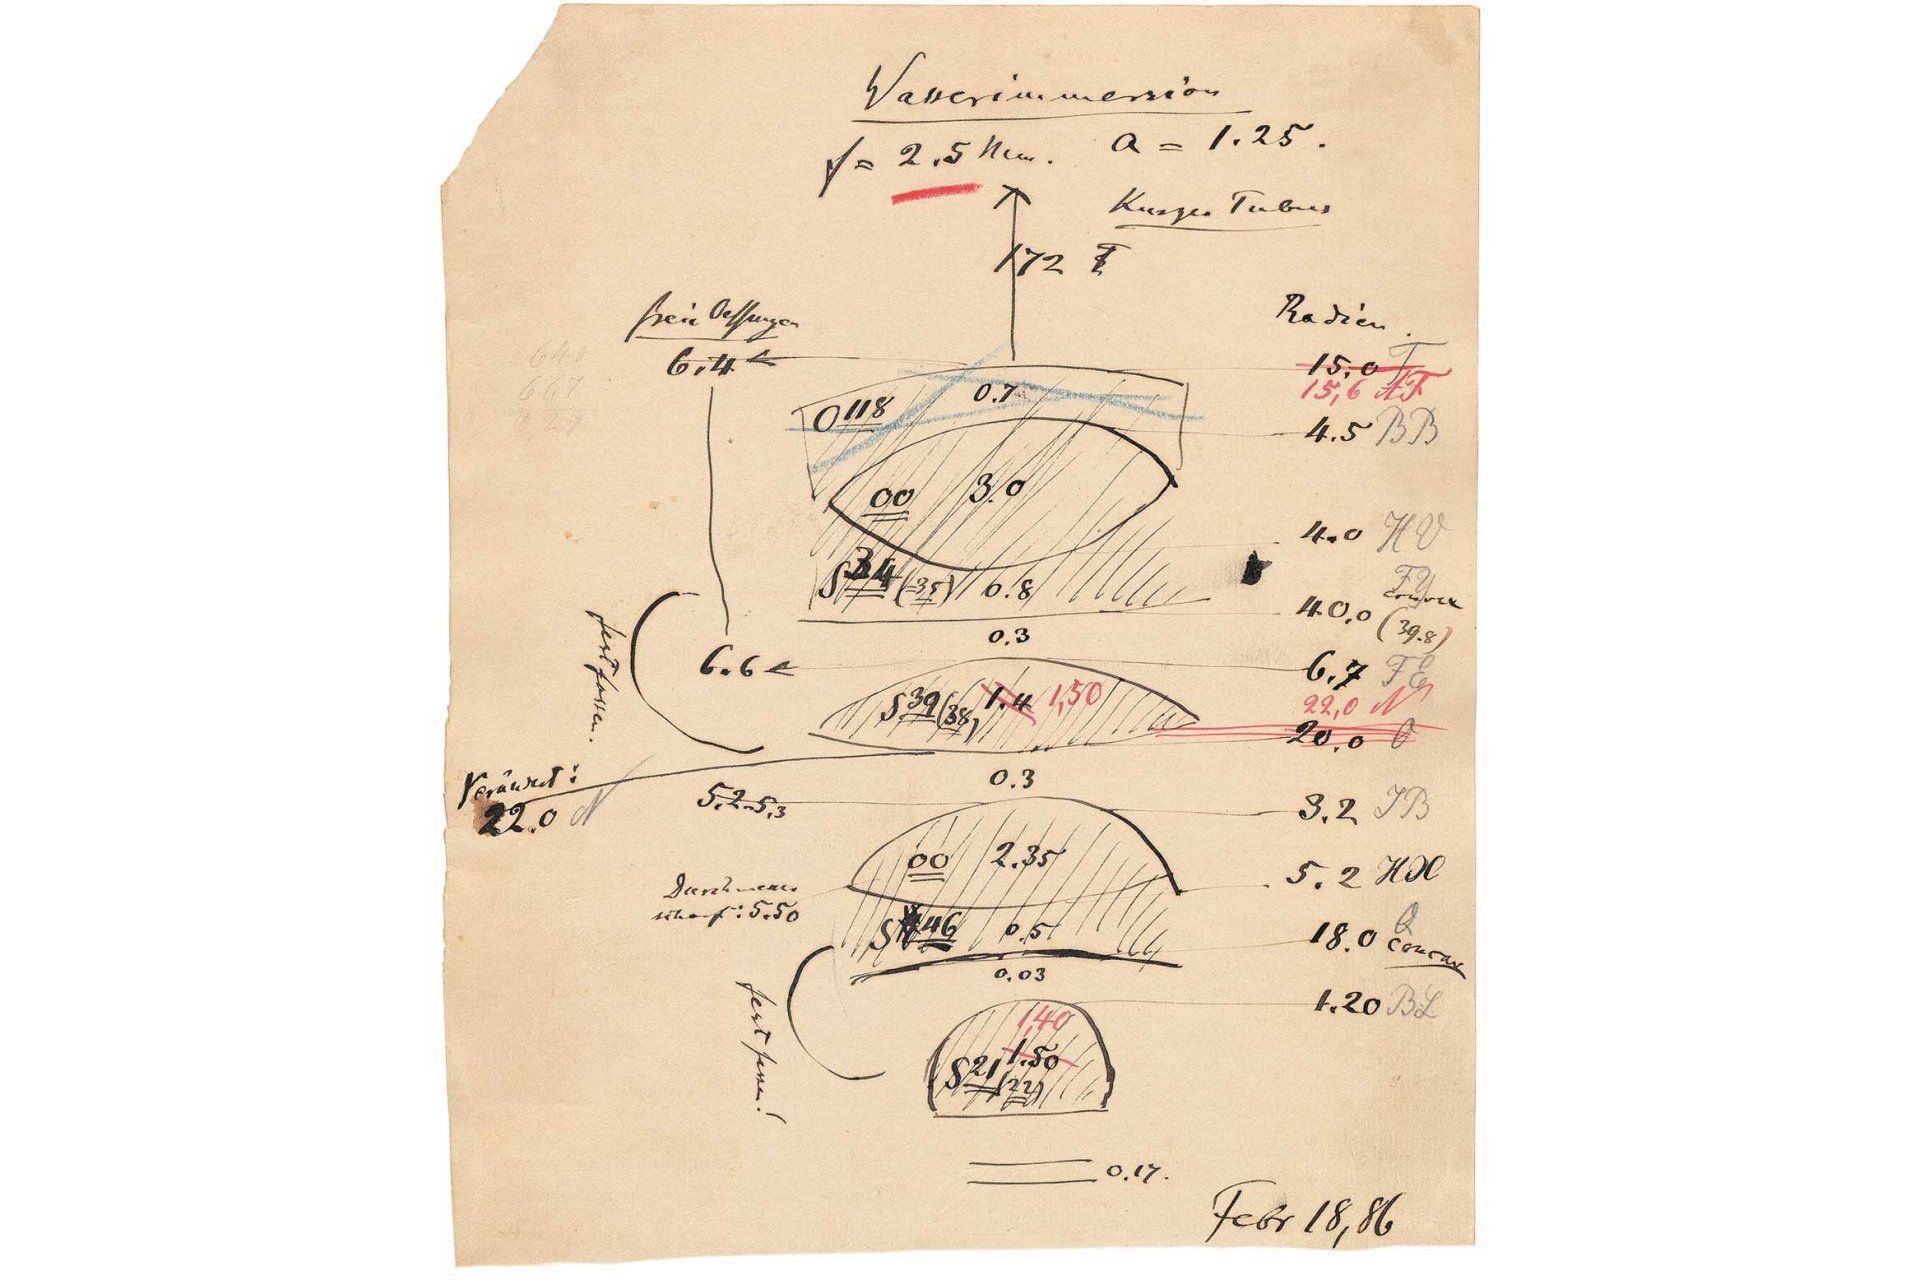 Wasserimmersion
f = 2.5 Mm. a = 1.25.
Kurzer Tubus
172
freie Oeffnungen
Radien.
6.4
15.0 T
15,6 AF
0.7
O 118
4.5 BB
00 3.0
4.0 HV
S 34 (35) 0.8
convex
40,0 (39.8)
0.3
6.6
6.7 FE
fest fassen.
S 39 (38) 1.4 1,50
22,0 N
20.0
0.3
Verändert:
22.0 N
5.2-5,3
3.2 JB
00 2.35
5.2 HX
Durchmesser
scharf: 5.50
S 46 0.5
18.0 Q
concav
0.03
fest fassen!
1.20 BL
1,40
1.50
S 21 (22)
0.17.
Febr 18,86